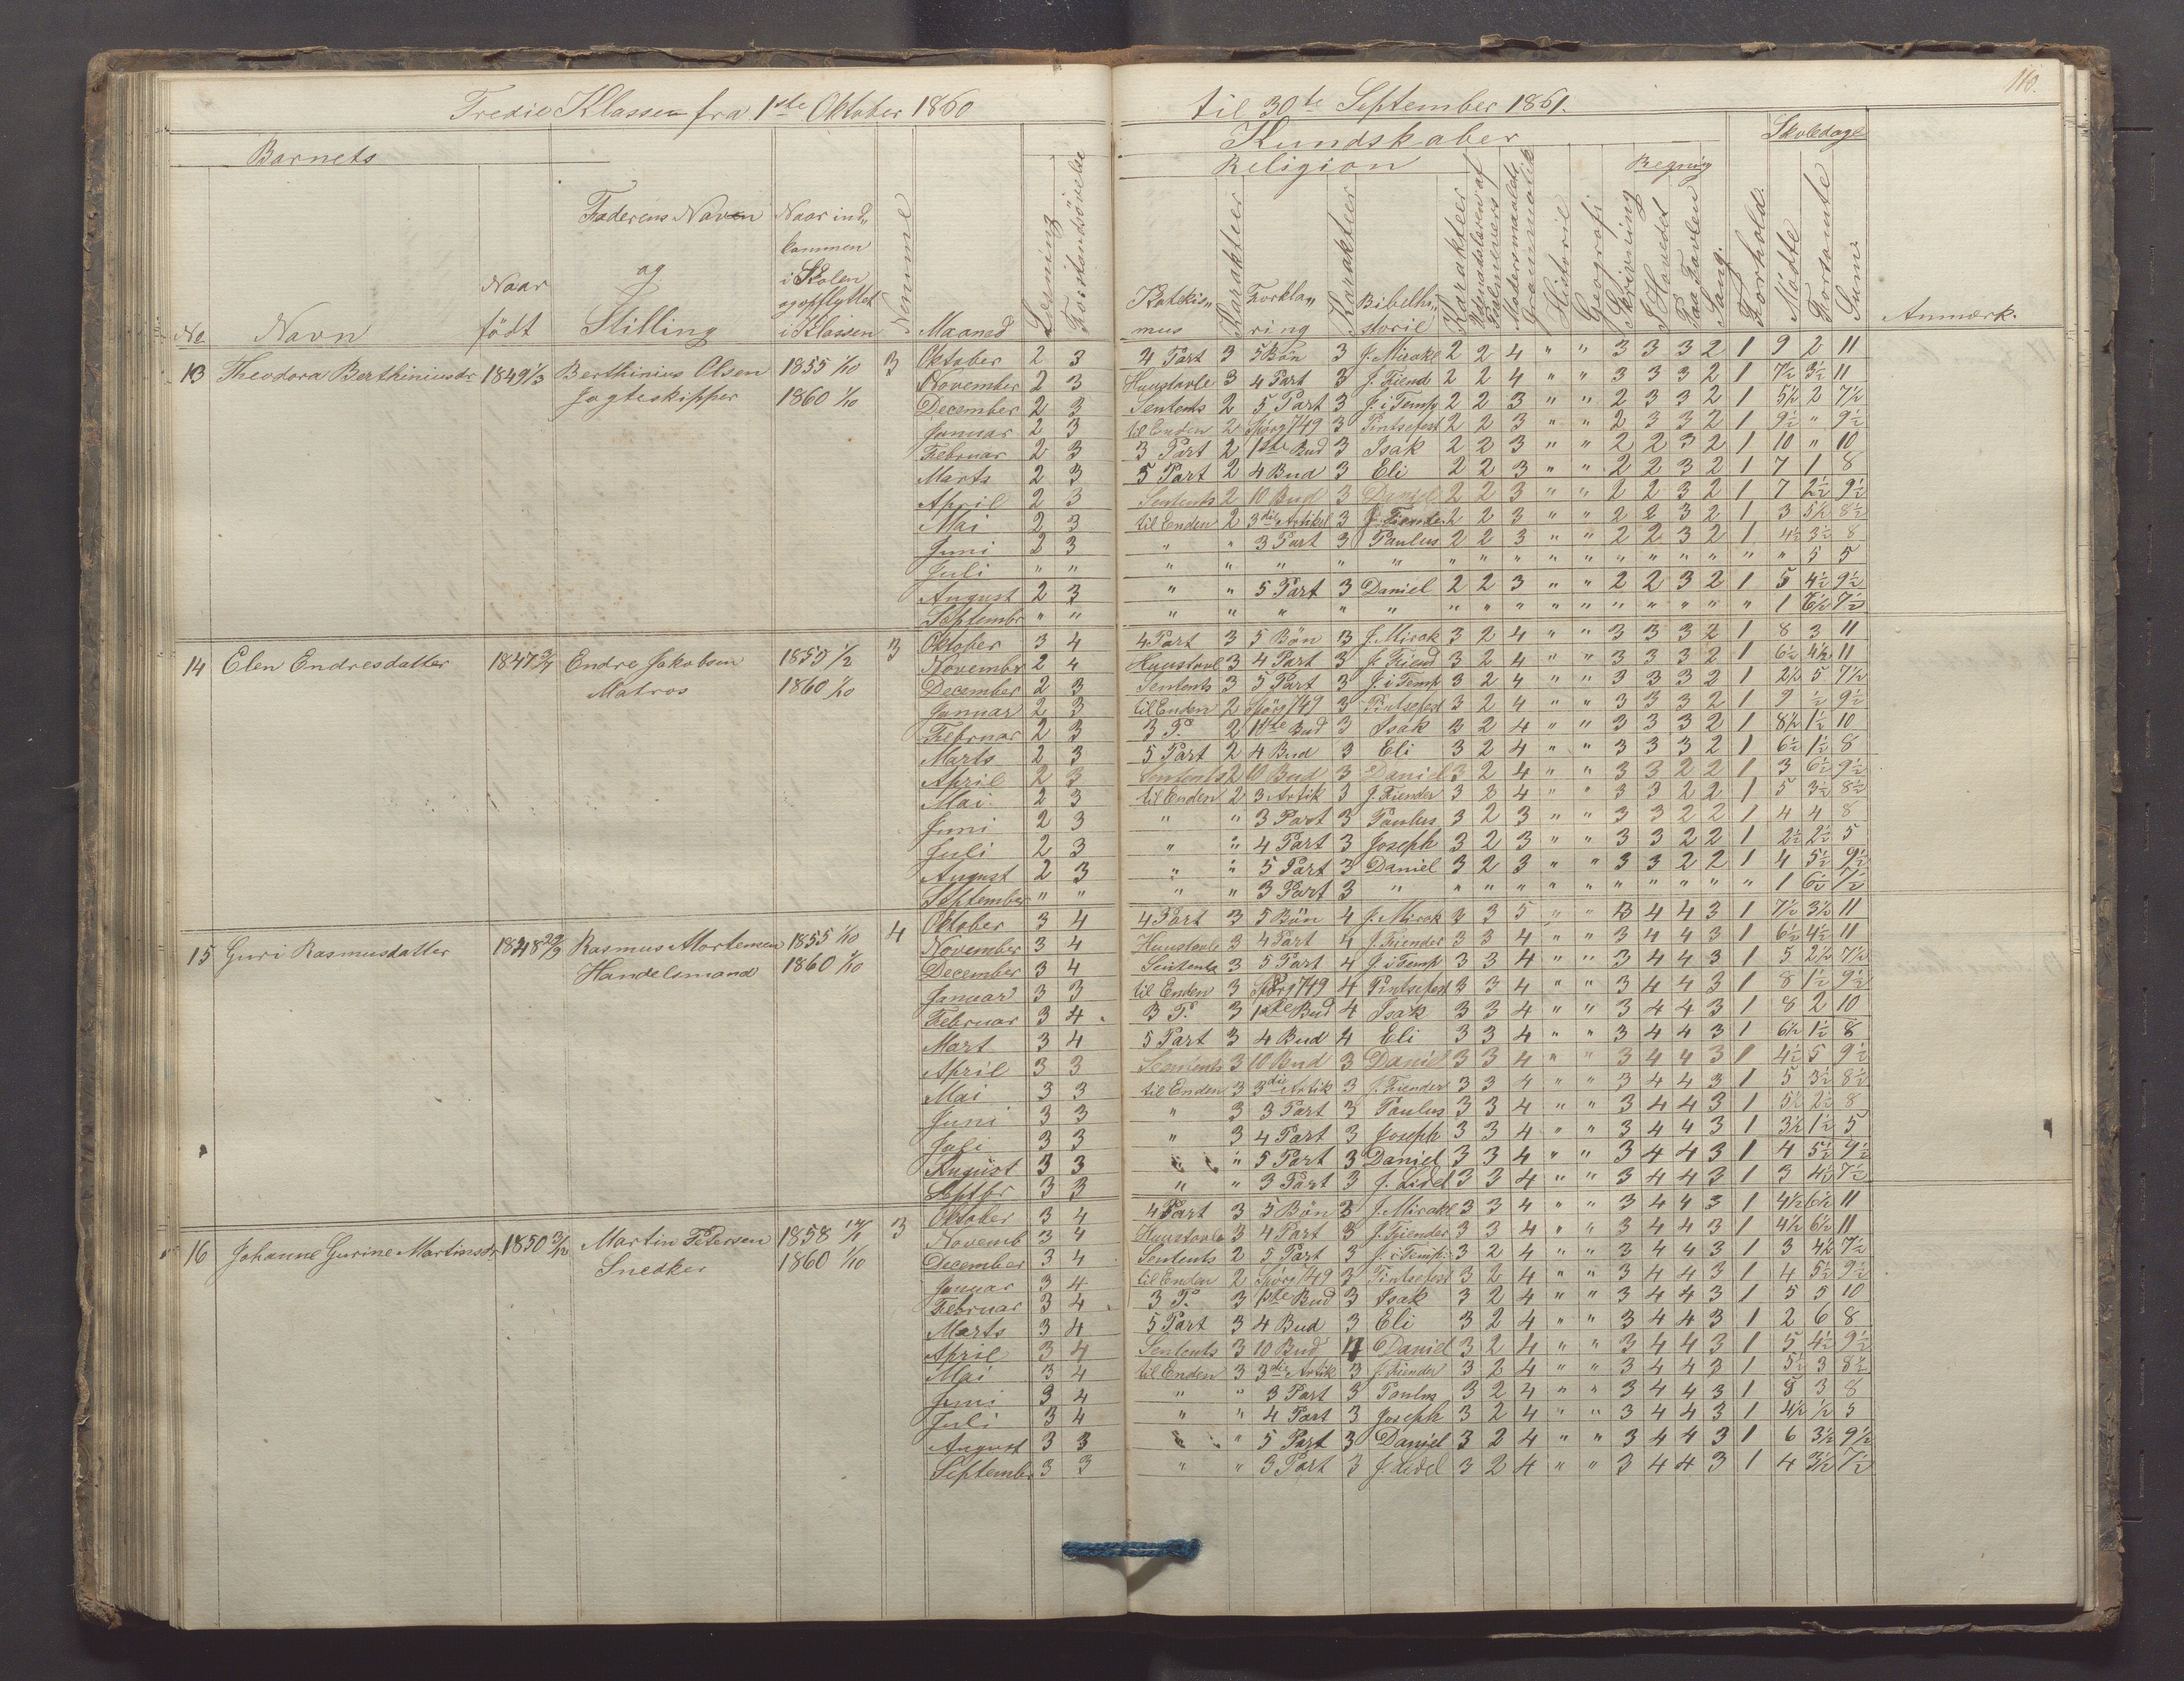 Tredie Klassen fra 1ste Oktober 1860 til 30te September 1861.
110.
Barnets
Kundskaber
Skoledage
Religion
Regning
No
Navn
Naar født
Faderens Navn og Stilling
Naar indkommen i Skolen og opflyttet i Klassen
Maaned
Læsning
Forstandsövelse
Katekismus
Karakteer
Forklaring
Karakteer
Bibelhistorie
Karakteer
Modersmaalets Grammatik
Historie
Geografi
Skrivning
I Hovedet
Paa Tavlen
Sang.
Forhold.
Mödte
Forsömte
Sum
Anmærk.
13 Theodora Berthiniusdr 1849 1/3 Berthinius Olsen 1855 1/10 3
Jagteskipper 1860 1/10
Oktober 2 3 4 Part 3 5 Bön 3 J. Mirakl 2 2 4 " " 3 3 3 2 1 9 2 11
November 2 3 Huustavle 3 4 Part 3 J. Fiend 2 2 4 " " 3 3 3 2 1 7½ 3½ 11
December 2 3 Sentents 2 5 Part 3 J. i Temp 2 2 3 " " 2 3 3 2 1 5½ 2 7½
Januar 2 3 til Enden 2 Spörg 749 3 Pintsefest 2 2 3 " " 2 3 3 2 1 9½ " 9½
Februar 2 3 3 Part 2 1ste Bud 3 Isak 2 2 3 " " 2 2 3 2 1 10 " 10
Marts 2 3 5 Part 2 4 Bud 3 Eli 2 2 3 " " 2 2 3 2 1 7 1 8
April 2 3 Sentents 2 10 Bud 3 Daniel 2 2 3 " " 2 2 3 2 1 7 2½ 9½
Mai 2 3 til Enden 2 3die Artikel 3 J. Fiender 2 2 3 " " 2 2 3 2 1 3 5½ 8½
Juni 2 3 " " 3 Part 3 Paulus 2 2 3 " " 2 2 3 2 1 4½ 3½ 8
Juli " " " " " " " " " " " " " " " " " " 5 5
August 2 3 " " 5 Part 3 Daniel 2 2 3 " " 2 2 3 2 1 5 4½ 9½
Septembr " " " " " " " " " " " " " " " " " 1 6½ 7½
14 Elen Endresdatter 1847 Endre Jakobsen 1855 1/2 3
Matros 1860 1/10
Oktober 3 4 4 Part 3 5 Bön 3 J. Mirak 3 2 4 " " 3 3 3 2 1 8 3 11
November 2 4 Huustavl 3 4 Part 3 J. Fiend 3 2 4 " " 3 3 3 2 1 6½ 4½ 11
December 2 3 Sentents 3 5 Part 3 J. i Temp 3 2 4 " " 3 3 3 2 1 2½ 5 7½
Januar 2 3 til Enden 2 Spörg 749 3 Pintsefest 3 2 4 " " 3 3 3 2 1 9 ½ 9½
Februar 2 3 3 P. 2 1ste Bud 3 Isak 3 2 4 " " 3 3 3 2 1 8½ 1½ 10
Marts 2 3 5 Part 2 4 Bud 3 Eli 3 2 4 " " 3 3 3 2 1 6½ 1½ 8
April 2 3 Sentents 2 10 Bud 3 Daniel 3 2 4 " " 3 3 2 2 1 3 6½ 9½
Mai 2 3 til Enden 2 3 Artik 3 J. Fiender 3 2 4 " " 3 3 2 2 1 5 3½ 8½
Juni 2 3 " " 3 Part 3 Paulus 3 2 3 " " 3 3 2 2 1 4 4 8
Juli 2 3 " " 4 Part 3 Joseph 3 2 3 " " 3 3 2 2 1 2½ 2½ 5
August 2 3 " " 5 Part 3 Daniel 3 2 3 " " 3 3 2 2 1 4 5½ 9½
September " " " " 3 Part 3 " " " " " " " " " " " 1 6½ 7½
15 Guri Rasmusdatter 1848 29/3 Rasmus Mortensen 1855 1/10 4
Handelsmand 1860 1/10
Oktober 3 4 4 Part 3 5 Bön 4 J. Mirak 3 3 5 " " 3 4 4 3 1 7½ 3½ 11
November 3 4 Huustavle 3 4 Part 4 J. Fiender 3 3 4 " " 3 4 4 3 1 6½ 4½ 11
December 3 4 Sentents 3 5 Part 4 J. i Temp 3 3 4 " " 3 4 4 3 1 5 2½ 7½
Januar 3 3 til Enden 3 Spörg 749 4 Pintsefest 3 3 4 " " 3 4 4 3 1 8 1½ 9½
Februar 3 4 3 P. 3 1ste Bud 4 Isak 3 3 4 " " 3 4 4 3 1 8 2 10
Mart 3 4 5 Part 3 4 Bud 4 Eli 3 3 4 " " 3 4 4 3 1 6½ 1½ 8
April 3 3 Sentents 3 10 Bud 3 Daniel 3 3 4 " " 3 4 4 3 1 4½ 5 9½
Mai 3 3 til Enden 3 3die Artik 3 J. Fiender 3 3 4 " " 3 4 4 3 1 5 3½ 8½
Juni 3 3 " 3 3 Part 3 Paulus 3 3 4 " " 3 4 4 3 1 5½ 2½ 8
Juli 3 3 " 3 4 Part 3 Joseph 3 3 4 " " 3 4 4 3 1 3½ 1½ 5
August 3 3 " " 5 Part 3 Daniel 3 3 4 " " 3 4 4 3 1 4 5½ 9½
Septbr 3 3 " " 3 Part 3 J. Lidel 3 3 4 " " 3 4 4 3 1 3 4½ 7½
16 Johanne Gurine Martinsdr 1850 3/12 Martin Petersen 1858 3
Snedker 1860 1/10
Oktober 3 4 4 Part 3 5 Bön 3 J. Mirakl 3 3 4 " " 3 4 4 3 1 4½ 6½ 11
Novemb 3 4 Huustavle 3 4 Part 3 J. Fiender 3 3 4 " " 3 4 4 3 1 4½ 6½ 11
December 3 4 Sentents 2 5 Part 3 J. i Temp. 3 2 4 " " 3 4 4 3 1 3 4½ 7½
Januar 3 4 til Enden 2 Spörg 749 3 Pintsefest 3 2 4 " " 3 4 4 3 1 4 5½ 9½
Februar 3 4 3 P. 3 1ste Bud 3 Isak 3 2 4 " " 3 4 4 3 1 5 5 10
Marts 3 4 5 Part 3 4 Bud 3 Eli 3 2 4 " " 3 4 4 3 1 2 6 8
April 3 4 Sentents 3 10 Bud 4 Daniel 3 2 4 " " 3 4 4 3 1 5 4½ 9½
Mai 3 4 til Enden 3 3die Artik 3 J. Fiender 3 2 4 " " 3 4 4 3 1 5½ 3 8½
Juni 3 4 " " 3 Part 3 Paulus 3 2 4 " " 3 4 4 3 1 5 3 8
Juli 3 4 " " 4 Part 3 Joseph 3 2 4 " " 3 4 4 3 1 4½ ½ 5
August 3 3 " " 5 Part 3 Daniel 3 2 4 " " 3 4 4 3 1 6 3½ 9½
September 3 3 " " 3 Part 3 J. Lidel 3 2 4 " " 3 4 4 3 1 4 3½ 7½